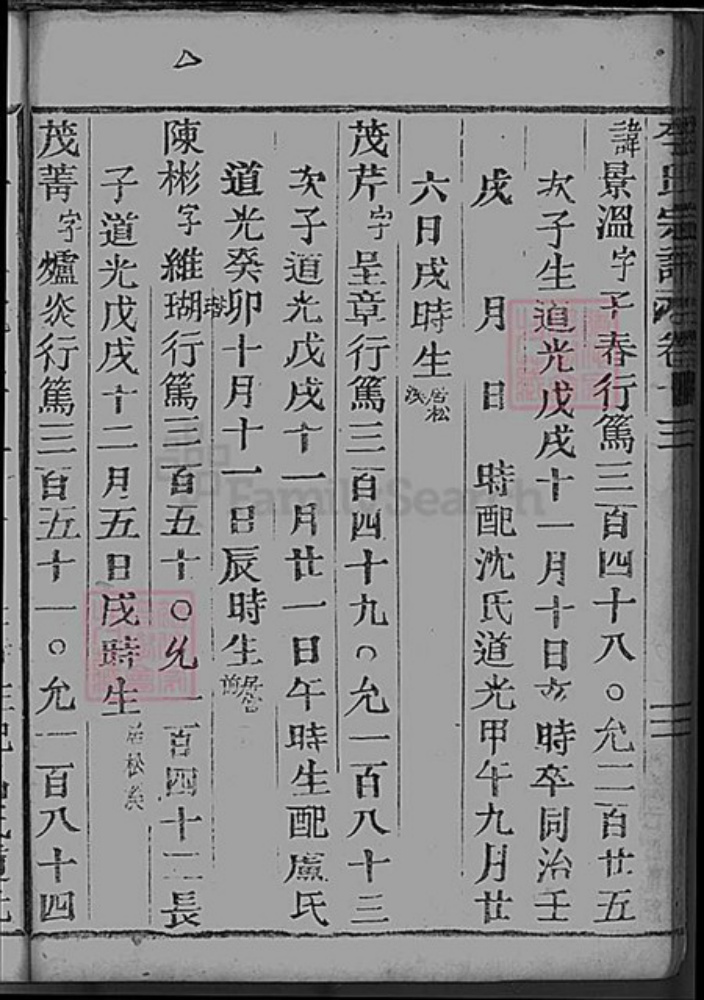 諱景溫字子春行篤三百四十八○允二百廿五
次子生道光戊戌十一月十日 時卒同治壬
戌 月 日 時配沈氏道光甲午九月廿
六日戌時生居松溪
茂芹字呈章行篤三百四十九○允一百八十三
次子道光戊戌十一月廿一日午時生配盧氏
道光癸卯十月十一日辰時生
陳彬字維瑚行篤三百五十○允一百四十二長
子道光戊戌十二月五日戌時生居松溪
茂菁字爐炎行篤三百五十一○允一百八十四
FamilySearch